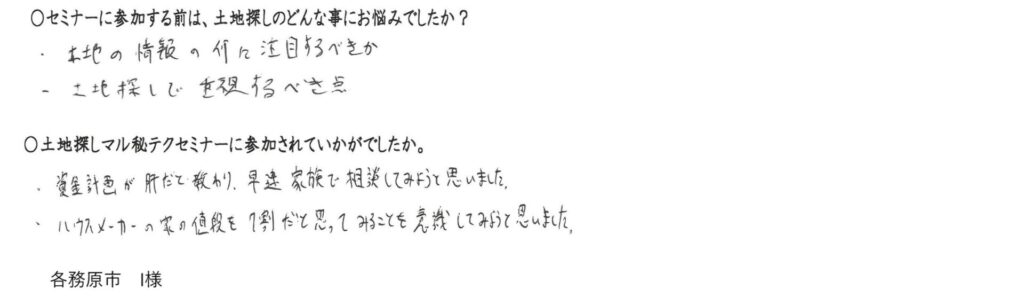 〇セミナーに参加する前は、土地探しのどんな事にお悩みでしたか？
・土地の情報の何に注目するべきか
- 土地探しで重視するべき点
〇土地探しマル秘テクセミナーに参加されていかがでしたか。
・資金計画が肝だと教わり、早速家族で相談してみようと思いました。
・ハウスメーカーの家の値段を7割だと思ってみることを意識してみようと思いました。
各務原市　I様